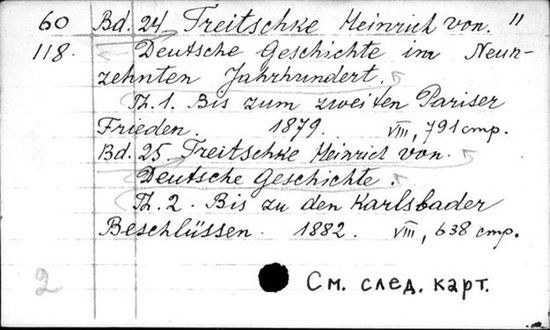 60 Bd. 24 Treitschke Heinrich von. "
118. Deutsche Geschichte im Neun-
zehnten Jahrhundert.
Th. 1. Bis zum zweiten Pariser
Frieden. 1879. VIII, 791 стр.
Bd. 25 Treitschke Heinrich von.
Deutsche Geschichte.
Th. 2. Bis zu den Karlsbader
Beschlüssen. 1882. VIII, 638 стр.
2
См. след. карт.